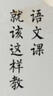 语文课
就该这样教